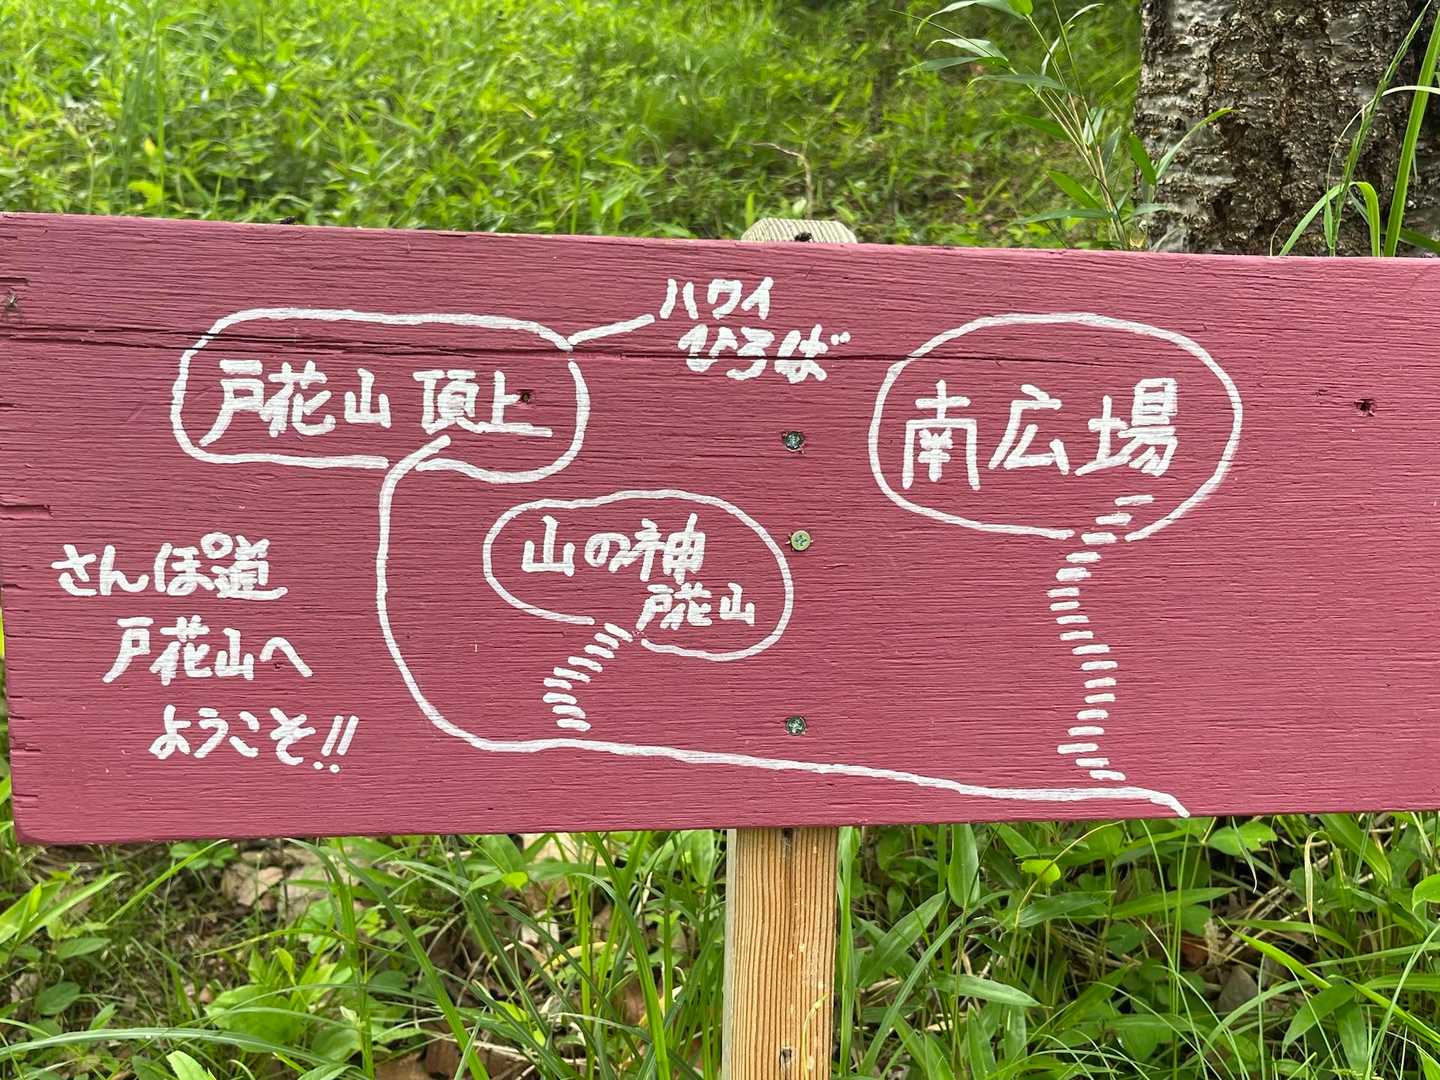 ハワイ
ひろば
戸花山 頂上
南広場
山の神
戸花山
さんぽ道
戸花山へ
ようこそ!!